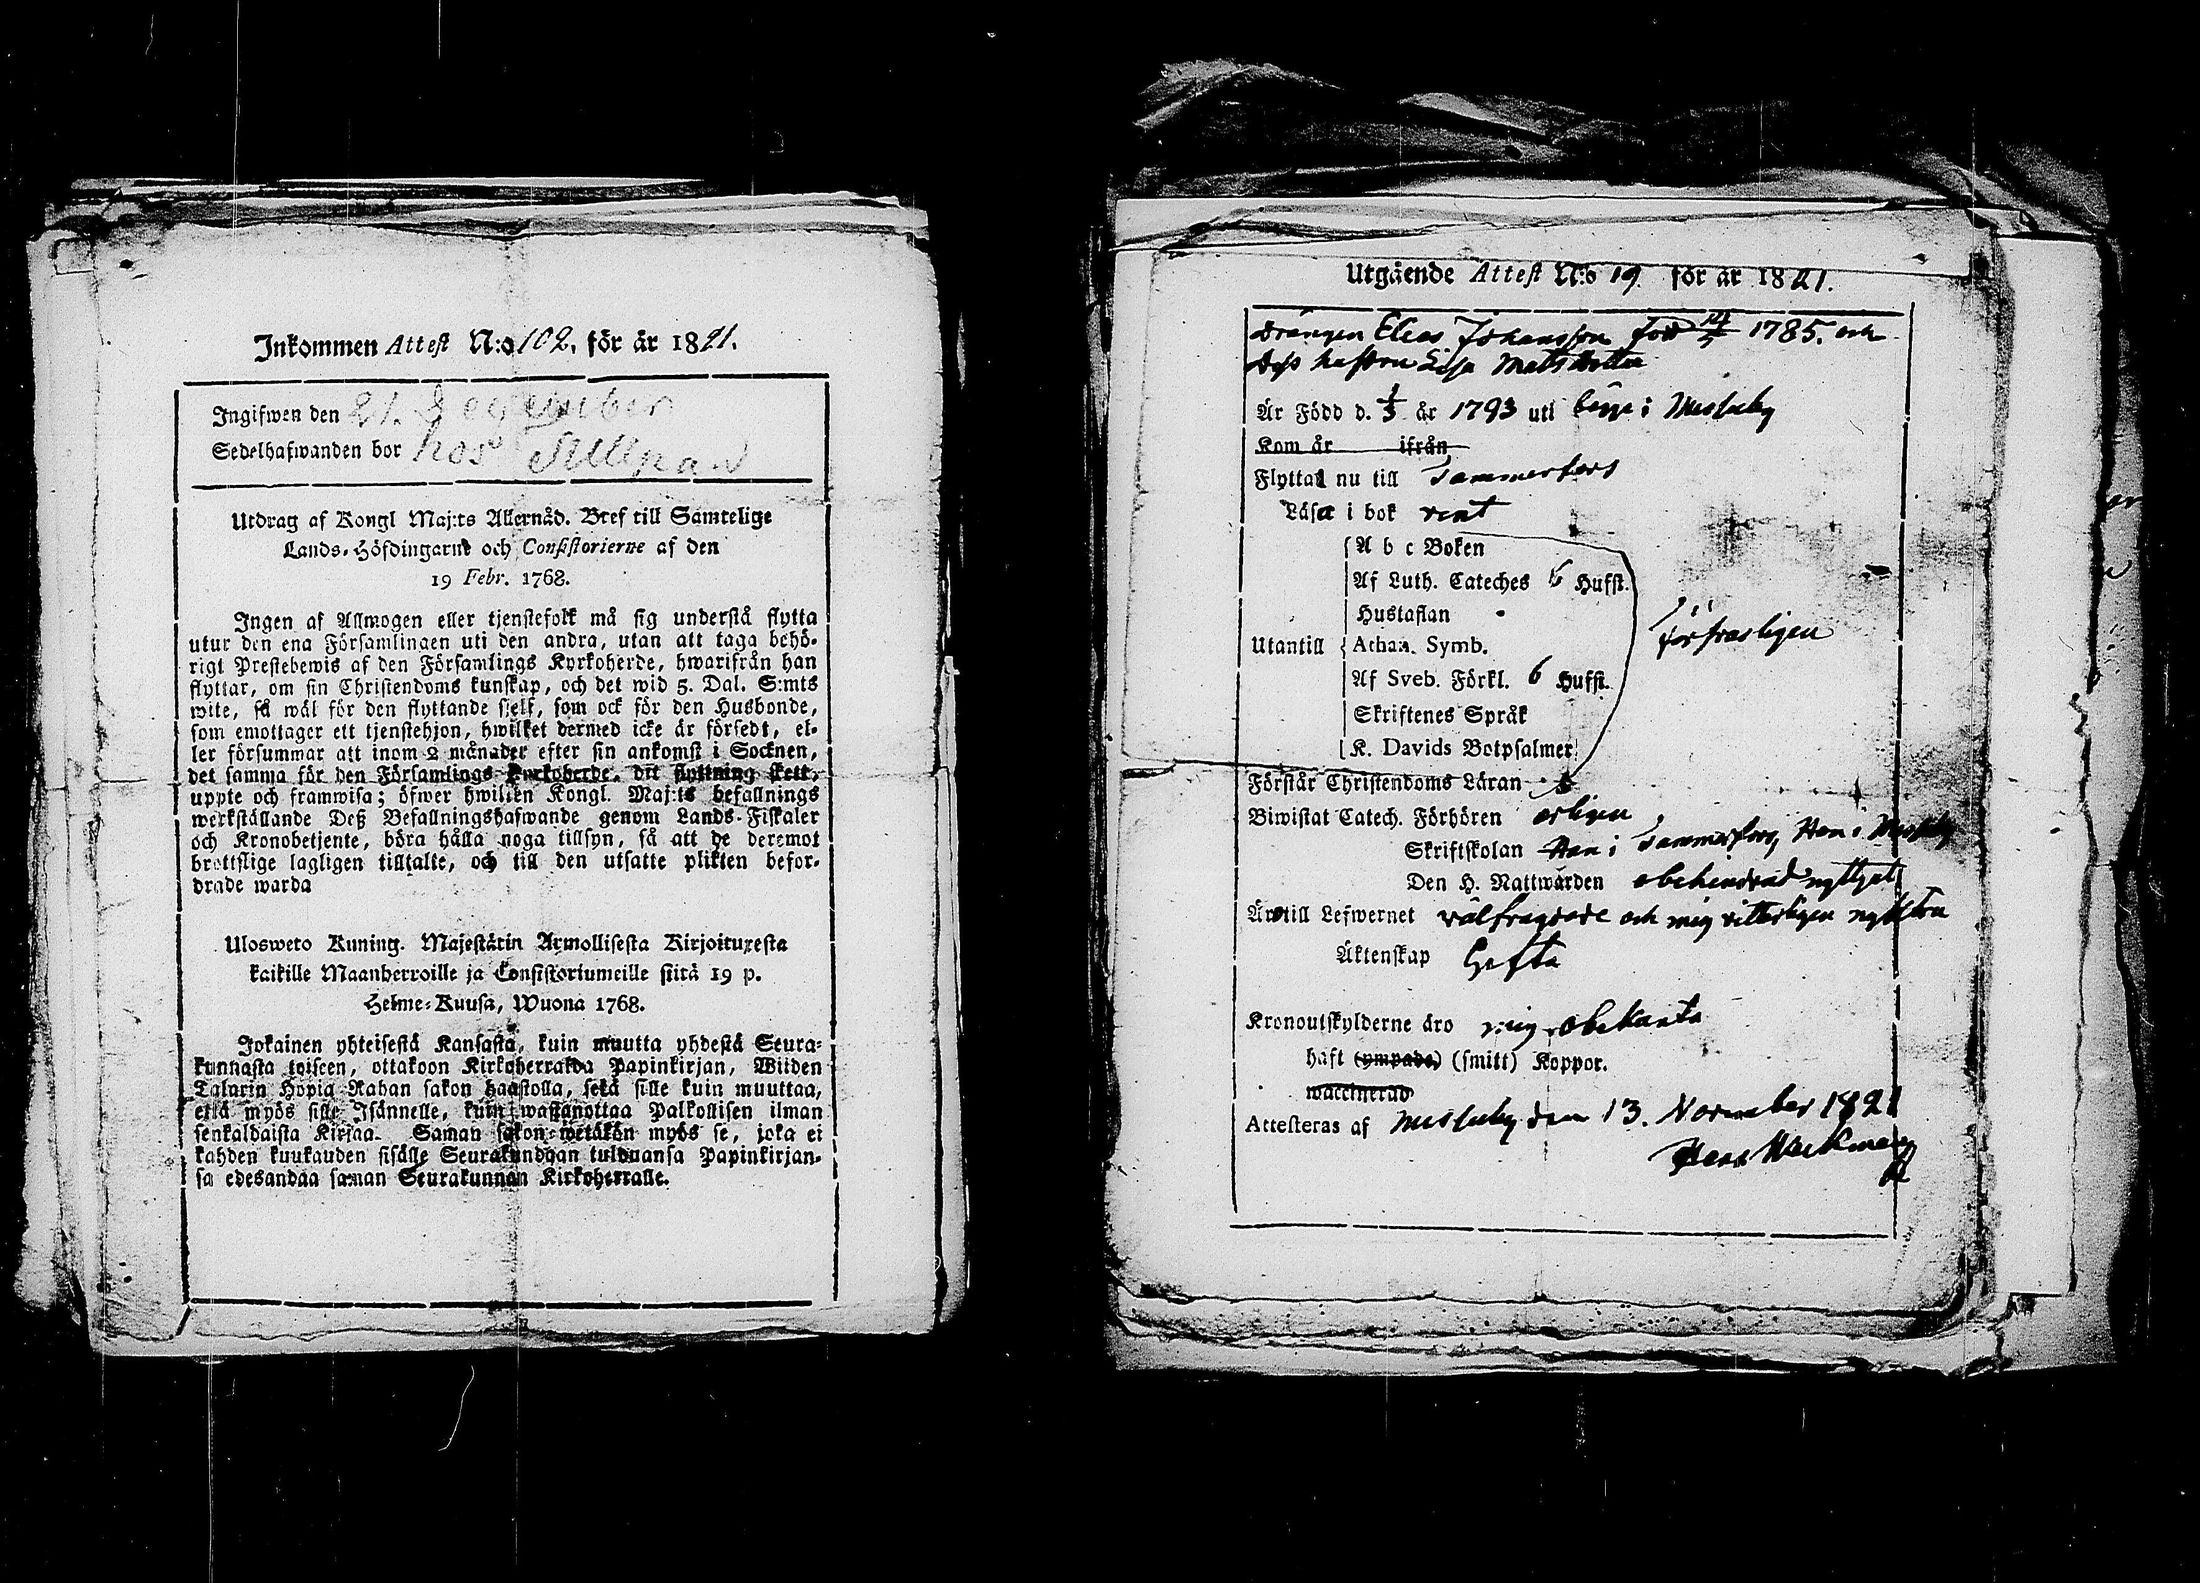 Inkommen Attest N:o 102. för år 1821.
Ingifwen den 21. December
Sedelhafwanden bor hos
Utdrag af Kongl Maj:ts Allernåd. Bref till Samtelige
Lands-Höfdingarne och Consistorierne af den
19 Febr. 1768.
Ingen af Allmogen eller tjenstefolk må sig understå flytta
utur den ena Församlingen uti den andra, utan att taga behö-
rigt Prestebewis af den Församlings Kyrkoherde, hwarifrån han
flyttar, om sin Christendoms kunskap, och det wid 5. Dal. S:mts
wite, så wäl för den flyttande sjelf, som ock för den Husbonde,
som emottager ett tjenstehjon, hwilket dermed icke är försedt, el-
ler försummar att inom 2 månader efter sin ankomst i Socknen,
det samma för den Församlings Kyrkoherde, dit flyttning skett,
uppte och framwisa; öfwer hwilken Kongl. Maj:ts befallnings
werkställande Deß Befallningshafwande genom Lands-Fiskaler
och Kronobetjente, böra hålla noga tillsyn, så att de deremot
brottslige lagligen tilltalte, och till den utsatte plikten befor-
drade warda
Ulosweto Kuning. Majestätin Armollisesta Kirjoituxesta
kaikille Maanherroille ja Consistoriumeille siitä 19 p.
Helme-Kuusa, Wuona 1768.
Jokainen yhteisestä Kansasta, kuin muutta yhdestä Seura-
kunnasta toiseen, ottakoon Kirkoherralda Papinkirjan, Wiiden
Talarin Hopia Rahan sakon haastolla, sekä sille kuin muuttaa,
että myös sille Isännelle, kuin wastanottaa Palkollisen ilman
senkaldaista Kirjaa. Saman sakon wetäkön myös se, joka ei
kahden kuukauden sisälle Seurakundaan tulduansa Papinkirjan-
sa edesandaa saman Seurakunnan Kirkoherralle.
Utgående Attest N:o 19. för år 1821.
Drängen Elias Johansson född 1785. och
dess hustru Lisa Matsdotter
Är Född d. 1/3 år 1793 uti i
Kom år ifrån
Flytta nu till Tammerfors
Läsa i bok rent
A b c Boken
Af Luth. Cateches 6 Hufst.
Hustaflan
Utantill Athan. Symb.
Af Sveb. Förkl. 6 Hufst.
Skriftenes Språk
K. Davids Botpsalmer
försvarligen
Förstår Christendoms Läran
Biwistat Catech. Förhören årligen
Skriftskolan Han i Tammerfors, Hon i
Den H. Nattwarden obehindrad nyttjat
Äro till Lefwernet välfrägdade och mig vitterligen nyktra
Äktenskap Gifta
Kronoutskylderne äro mig obekanta
haft (ympade) (smitt) Koppor.
waccinerad
Attesteras af den 13. November 1821